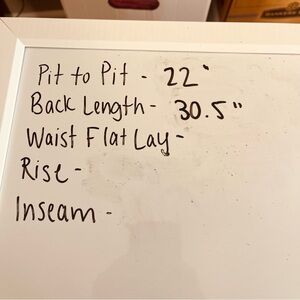 Pit to Pit - 22"
Back Length - 30.5"
Waist Flat Lay -
Rise -
Inseam -